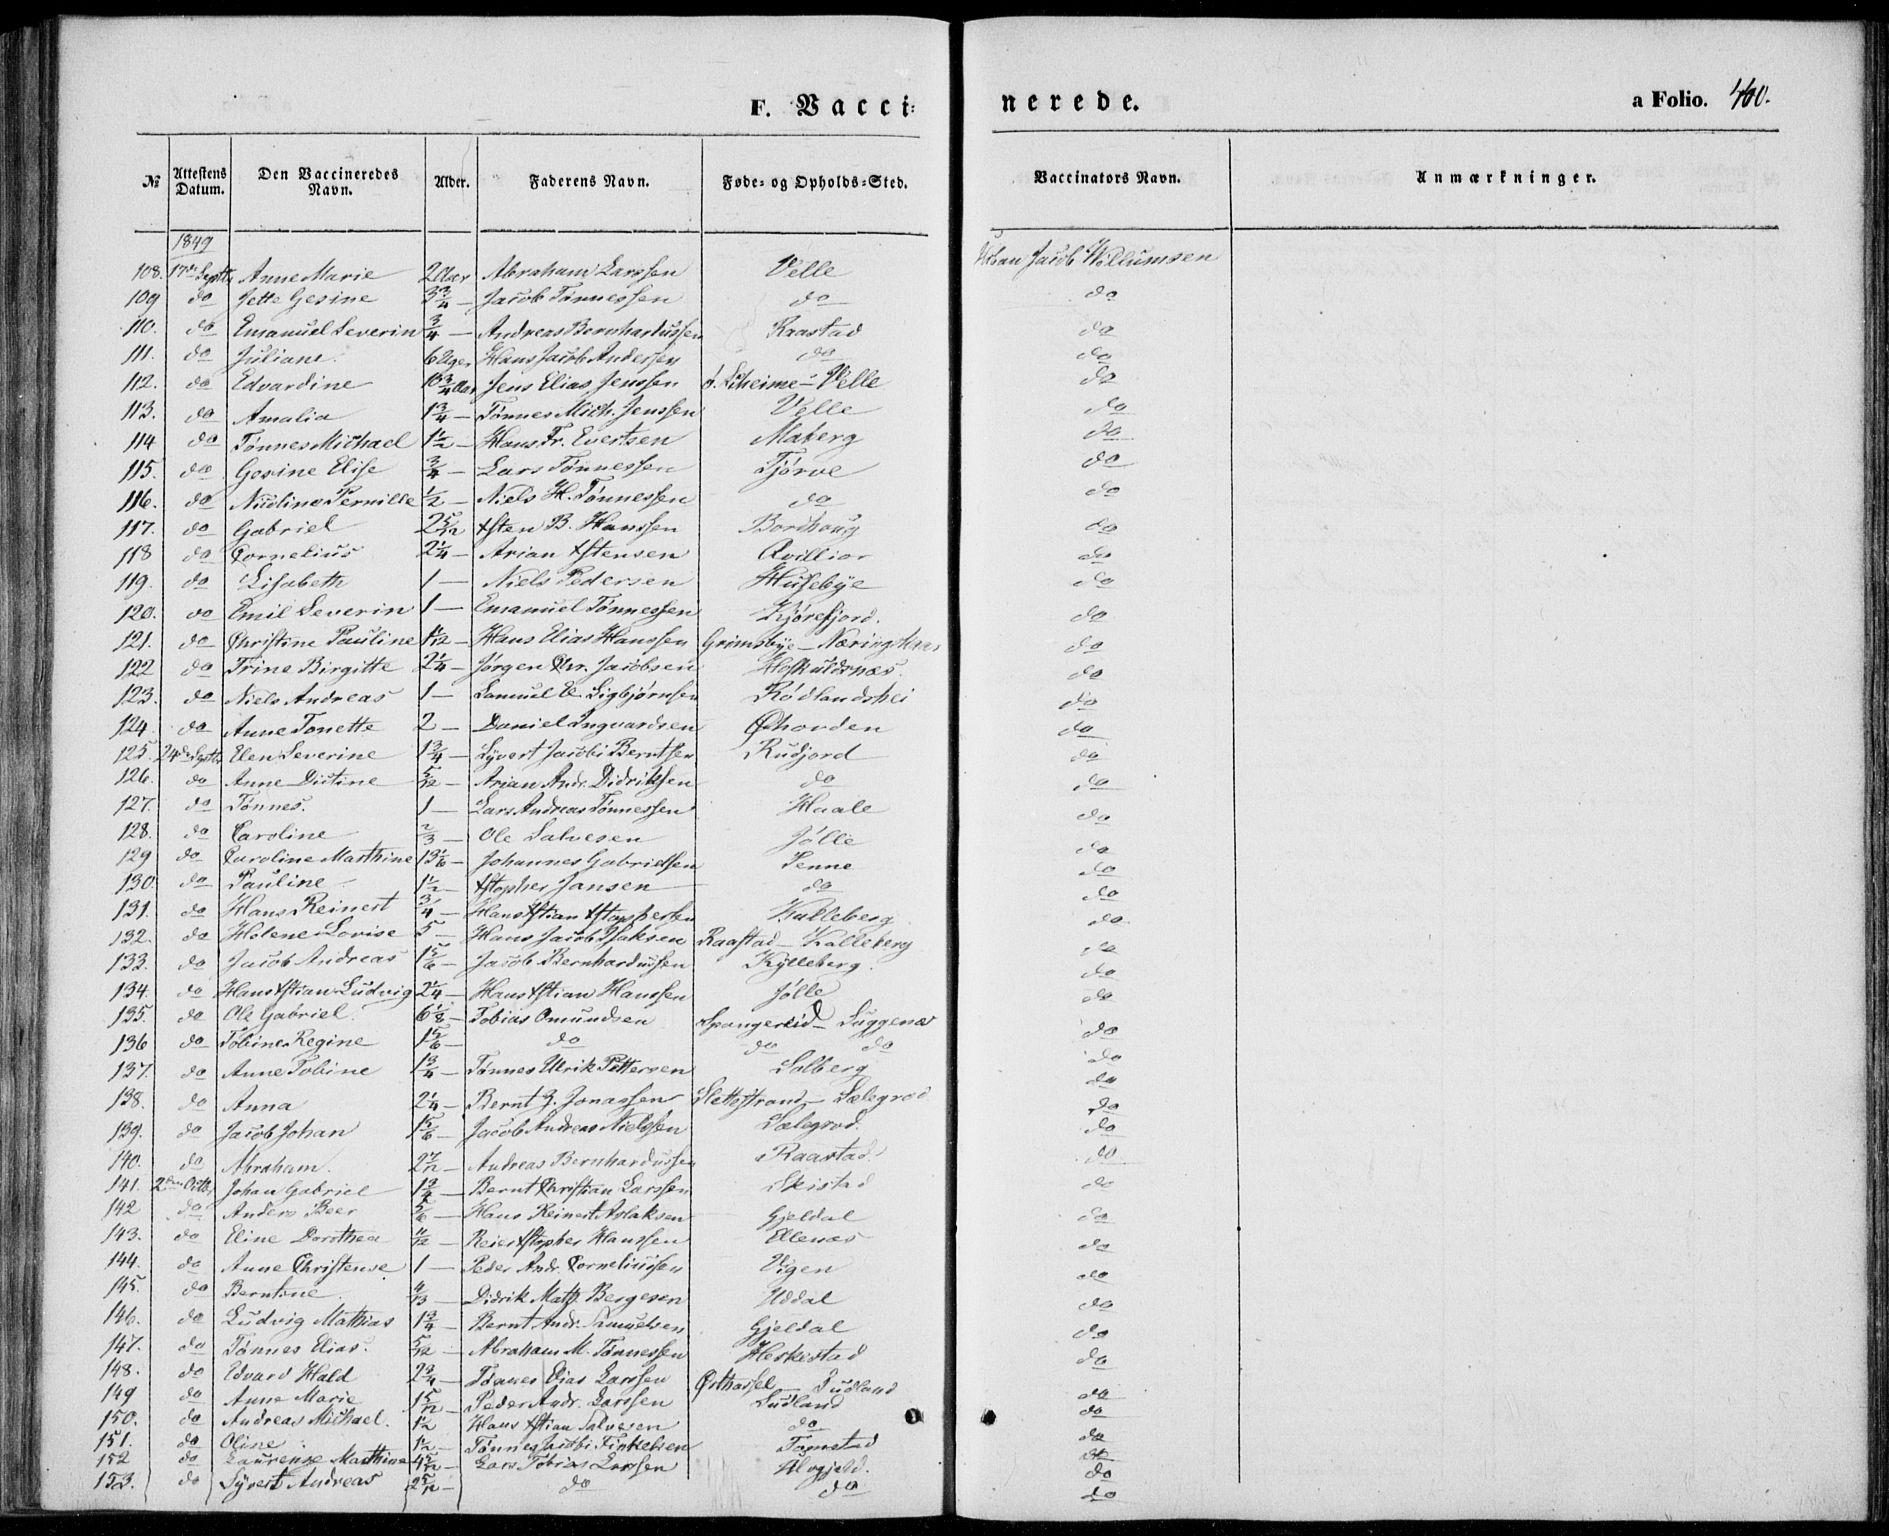 F. Vacci=
nerede.
a Folio. 400.
№ Attestens Datum. Den Vaccineredes Navn. Alder. Faderens Navn. Føde- og Opholds-Sted. Vaccinators Navn. Anmærkninger.
1849
108. 17de Septbr Anne Marie 2 Aar Abraham Larssen Velle Urban Jacob Willumsen
109 do Jette Gesine 3 3/4 — Jacob Tønnessen do do
110. do Emanuel Severin 3/4 — Andreas Bernhardussen Raastad do
111. do Juliane. 6 Uger Hans Jacob Andersen do do
112. do Edvardine 10 3/4 Aar Jens Elias Jenssen Velle do
113. do Amalia 1 3/4 — Tønnes Mich. Jenssen Velle do
114 do Tønnes Michael 1 1/2 — Hans Fr. Evertsen Maberg do
115. do Gesine Elise 3/4 — Lars Tønnessen Tjørve do
116. do Nicoline Pernille 1/2 — Niels H. Tønnessen do do
117. do Gabriel 2 5/12 Xsten B. Hanssen Bordhoug do
118 do Cornelius 2 1/4 — Arian Xstensen Qvilliar do
119. do Lisabeth 1 — Niels Pedersen Husebye do
120. do Emil Severin 1 — Emanuel Tønnessen Kjørefjord. do
121. do Christine Pauline 1 1/12 — Hans Elias Hanssen Grimsbye — do
122 do Trine Birgitte 2 1/4 — Jørgen Chr. Jacobsen Hoskuldsnæs. do
123. do Niels Andreas 1 — Samuel E. Sigbjørnsen Rødlandshei do
124. do Anne Tonette 2 — Daniel Ingvardsen Øhovden do
125. 24de Septbr Elen Severine 1 3/4 — Syvert Jacobi Berntsen Rudjord do
126. do Anne Distine 5/12 — Arian Andr. Didriksen do do
127. do Tønnes. 1 — Lars Andreas Tønnessen Haale do
128. do Caroline 2/3 — Ole Salvesen Jølle do
129 do Caroline Marthine 13 1/6 — Johannes Gabrielsen Penne do
130. do Pauline 1 1/2 — Xstopher Jansen do do
131. do Hans Reinert 3/4 — Hans Xstian Xstophersen Kalleberg do
132. do Helene Lovise 5 — Hans Jacob Isaksen Raastad — Kalleberg do
133. do Jacob Andreas 1 5/6 — Jacob Bernhardussen Kylleberg. do
134. do Hans Xstian Ludvig 2 1/4 — Hans Xstian Hanssen Jølle do
135. do Ole Gabriel. 6 1/8 — Tobias Omundsen Spangereid — Luggenæs do
136 do Tobine Regine 1 5/6 — do do do do
137. do Anne Tobine 1 3/4 — Tønnes Ulrik Pettersen Salberg do
138. do Anna 2 1/4 — Bernt G. Jonassen Slettestrand — Sælegrod do
139. do Jacob Johan 1 5/6 — Jacob Andreas Nielssen Sælegrod. do
140. do Abraham. 2 7/12 — Andreas Bernhardussen Raastad. do
141. 2den Octbr Johan Gabriel 1 3/4 — Bernt Christian Larssen Skistad do
142 do Anders Beer 5/6 — Hans Reinert Aslaksen Gjeldal do
143. do Eline Dorothea 11/12 — Reier Xstopher Hanssen Ellenæs do
144. do Anne Christense 1 — Peder Andr. Corneliussen Vigen do
145. do Berntine. Didrik Math. Bergesen Uddal do
146. do Ludvig Mathias 1 3/4 — Bernt Andr. Samuelsen Gjeldal do
147. do Tønnes Elias. 5/12 — Abraham M. Tønnessen Heskestad do
148. do Edvard Hald 2 3/4 — Tønnes Elias Larssen Østhassel — Sudland do
149 do Anne Marie 1 5/12 — Peder Andr. Larssen Sudland do
150. do Andreas Michael. 1 1/2 Hans Xstian Salvesen do do
151. do Oline 1 1/2 — Tønnes Jacobi Finkelsen Tomstad do
152 do Laurense Marthine 4 5/12 — Lars Tobias Larssen Ulvgjeld. do
153. do Syvert Andreas 2 5/12 — do do do